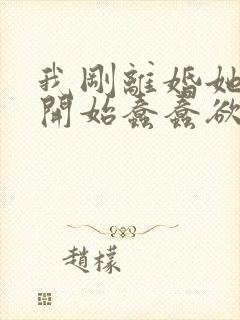 我剛離婚她
開始蠢蠢欲
趙檬